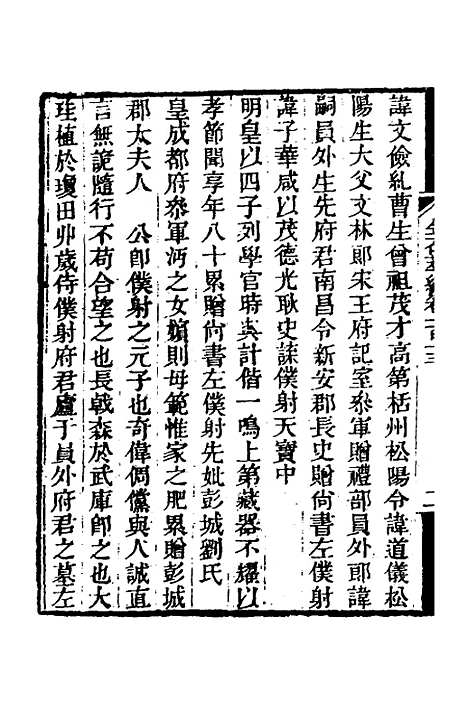 諱文儉糺曹生曾祖茂才高第栝州松陽令諱道儀松
陽生大父文林郎宋王府記室叅軍贈禮部員外郎諱
嗣員外生先府君南昌令新安郡長史贈尙書左僕射
諱子華咸以茂德光耿史諜僕射天寶中
明皇以四子列學官時與計偕一鳴上第藏器不耀以
孝節聞享年八十累贈尙書左僕射先妣彭城劉氏
皇成都府叅軍沔之女嬪則母範惟家之肥累贈彭城
郡太夫人　公卽僕射之元子也奇偉倜儻與人誠直
言無詭隨行不苟合望之也長戟森於武庫卽之也大
珪植於瓊田丱歲侍僕射府君廬于員外府君之墓左